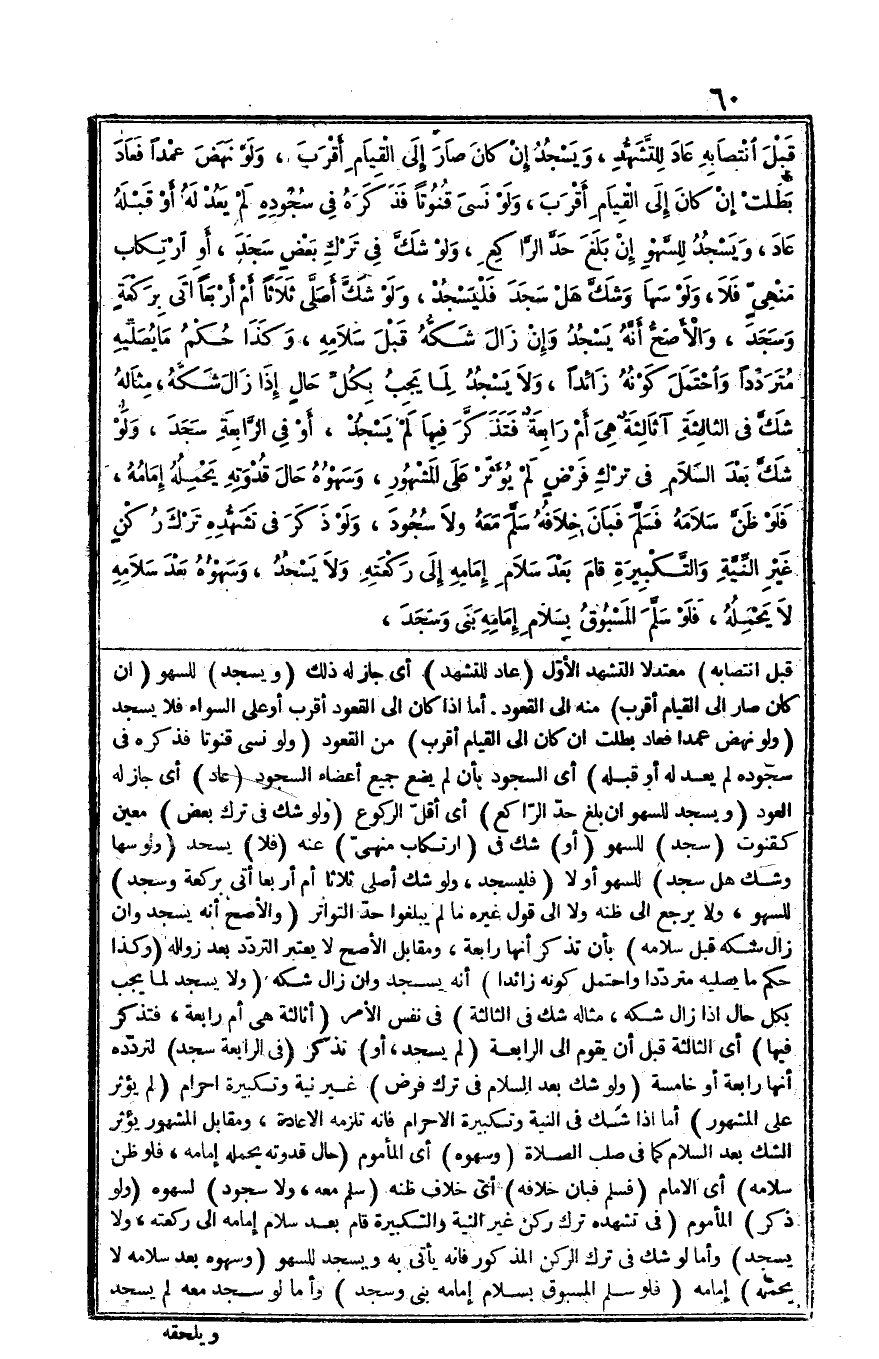 ٦٠
قَبْلَ ٱنْتِصَابِهِ عَادَ لِلتَّشَهُّدِ ، وَيَسْجُدُ إِنْ كَانَ صَارَ إِلَى الْقِيَامِ أَقْرَبَ ، وَلَوْ نَهَضَ عَمْداً فَعَادَ
بَطَلَتْ إِنْ كَانَ إِلَى الْقِيَامِ أَقْرَبَ ، وَلَوْ نَسِىَ قُنُوتاً فَذَكَرَهُ فِى سُجُودِهِ لَمْ يَعُدْ لَهُ أَوْ قَبْلَهُ
عَادَ ، وَيَسْجُدُ لِلسَّهْوِ إِنْ بَلَغَ حَدَّ الرَّاكِعِ ، وَلَوْ شَكَّ فِى تَرْكِ بَعْضٍ سَجَدَ ، أَوِ ٱرْتِكَابِ
مَنْهِىٍّ فَلَا ، وَلَوْ سَهَا وَشَكَّ هَلْ سَجَدَ فَلْيَسْجُدْ ، وَلَوْ شَكَّ أَصَلَّى ثَلَاثاً أَمْ أَرْبَعاً أَتَى بِرَكْعَةٍ
وَسَجَدَ ، وَالْأَصَحُّ أَنَّهُ يَسْجُدُ وَإِنْ زَالَ شَكُّهُ قَبْلَ سَلَامِهِ ، وَكَذَا حُكْمُ مَايُصَلِّيهِ
مُتَرَدِّداً وَٱحْتَمَلَ كَوْنُهُ زَائِداً ، وَلَا يَسْجُدُ لِمَا يَجِبُ بِكُلِّ حَالٍ إِذَا زَالَ شَكُّهُ ، مِثَالُهُ
شَكَّ فى الثالِثَةِ آثَالِثَةٌ هِىَ أَمْ رَابِعَةٌ فَتَذَكَّرَ فِيهَا لَمْ يَسْجُدْ ، أَوْ فِى الرَّابِعَةِ سَجَدَ ، وَلَوْ
شَكَّ بَعْدَ السَّلَامِ فى تَرْكِ فَرْضٍ لَمْ يُؤَثِّرْ عَلَى المَشْهُورِ ، وَسَهْوُهُ حَالَ قُدْوَتِهِ يَحْمِلُهُ إِمَامُهُ ،
فَلَوْ ظَنَّ سَلَامَهُ فَسَلَّمَ فَبَانَ خِلَافُهُ سَلَّمَ مَعَهُ ولاَ سُجُودَ ، وَلَوْ ذَكَرَ فى تَشَهُّدِهِ تَرْكَ رُكْنٍ
غَيْرِ النِّيَّةِ وَالتَّكْبِيرَةِ قامَ بَعْدَ سَلَامِ إِمَامِهِ إِلَى رَكْعَتِهِ وَلَا يَسْجُدُ ، وَسَهْوُهُ بَعْدَ سَلَامِهِ
لاَ يَحْمِلُهُ ، فَلَوْ سَلَّمَ المَسْبُوقُ بِسَلَامِ إِمَامِهِ بَنَى وَسَجَدَ ،
قبل انتصابه) معتدلا التشهد الأوّل (عاد للتشهد) أى جاز له ذلك (ويسجد) للسهو (ان
كان صار الى القيام أقرب) منه الى القعود . أما اذا كان الى القعود أقرب أوعلى السواء فلا يسجد
(ولو نهض عمدا فعاد بطلت ان كان الى القيام أقرب) من القعود (ولو نسى قنوتا فذكره فى
سجوده لم يعد له أو قبله) أى السجود بأن لم يضع جميع أعضاء السجود (عاد) أى جاز له
العود (ويسجد للسهو ان بلغ حدّ الراكع) أى أقلّ الركوع (ولو شك فى ترك بعض) معين
كقنوت (سجد) للسهو (أو) شك فى (ارتكاب منهىّ) عنه (فلا) يسجد (ولو سها
وشك هل سجد) للسهو أو لا (فليسجد ، ولو شك أصلى ثلاثا أم أربعا أتى بركعة وسجد)
للسهو ، ولا يرجع الى ظنه ولا الى قول غيره ما لم يبلغوا حدّ التواتر (والأصح أنه يسجد وان
زال شكه قبل سلامه) بأن تذكر أنها رابعة ، ومقابل الأصح لا يعتبر التردّد بعد زواله (وكذا
حكم ما يصليه متردّدا واحتمل كونه زائدا) أنه يسجد وان زال شكه (ولا يسجد لما يجب
بكل حال اذا زال شكه ، مثاله شك فى الثالثة) فى نفس الأمر (أثالثة هى أم رابعة ، فتذكر
فيها) أى الثالثة قبل أن يقوم الى الرابعة (لم يسجد ، أو) تذكر (فى الرابعة سجد) لتردّده
أنها رابعة أو خامسة (ولو شك بعد السلام فى ترك فرض) غير نية وتكبيرة احرام (لم يؤثر
على المشهور) أما اذا شك فى النية وتكبيرة الاحرام فانه تلزمه الاعادة ، ومقابل المشهور يؤثر
الشك بعد السلام كما فى صلب الصلاة (وسهوه) أى المأموم (حال قدوته يحمله إمامه ، فلو ظن
سلامه) أى الامام (فسلم فبان خلافه) أى خلاف ظنه (سلم معه ، ولا سجود) لسهوه (ولو
ذكر) المأموم (فى تشهده ترك ركن غير النية والتكبيرة قام بعد سلام إمامه الى ركعته ، ولا
يسجد) وأما لو شك فى ترك الركن المذكور فانه يأتى به ويسجد للسهو (وسهوه بعد سلامه لا
يحمله) إمامه (فلو سلم المسبوق بسلام إمامه بنى وسجد) وأما لو سجد معه لم يسجد
ويلحقه